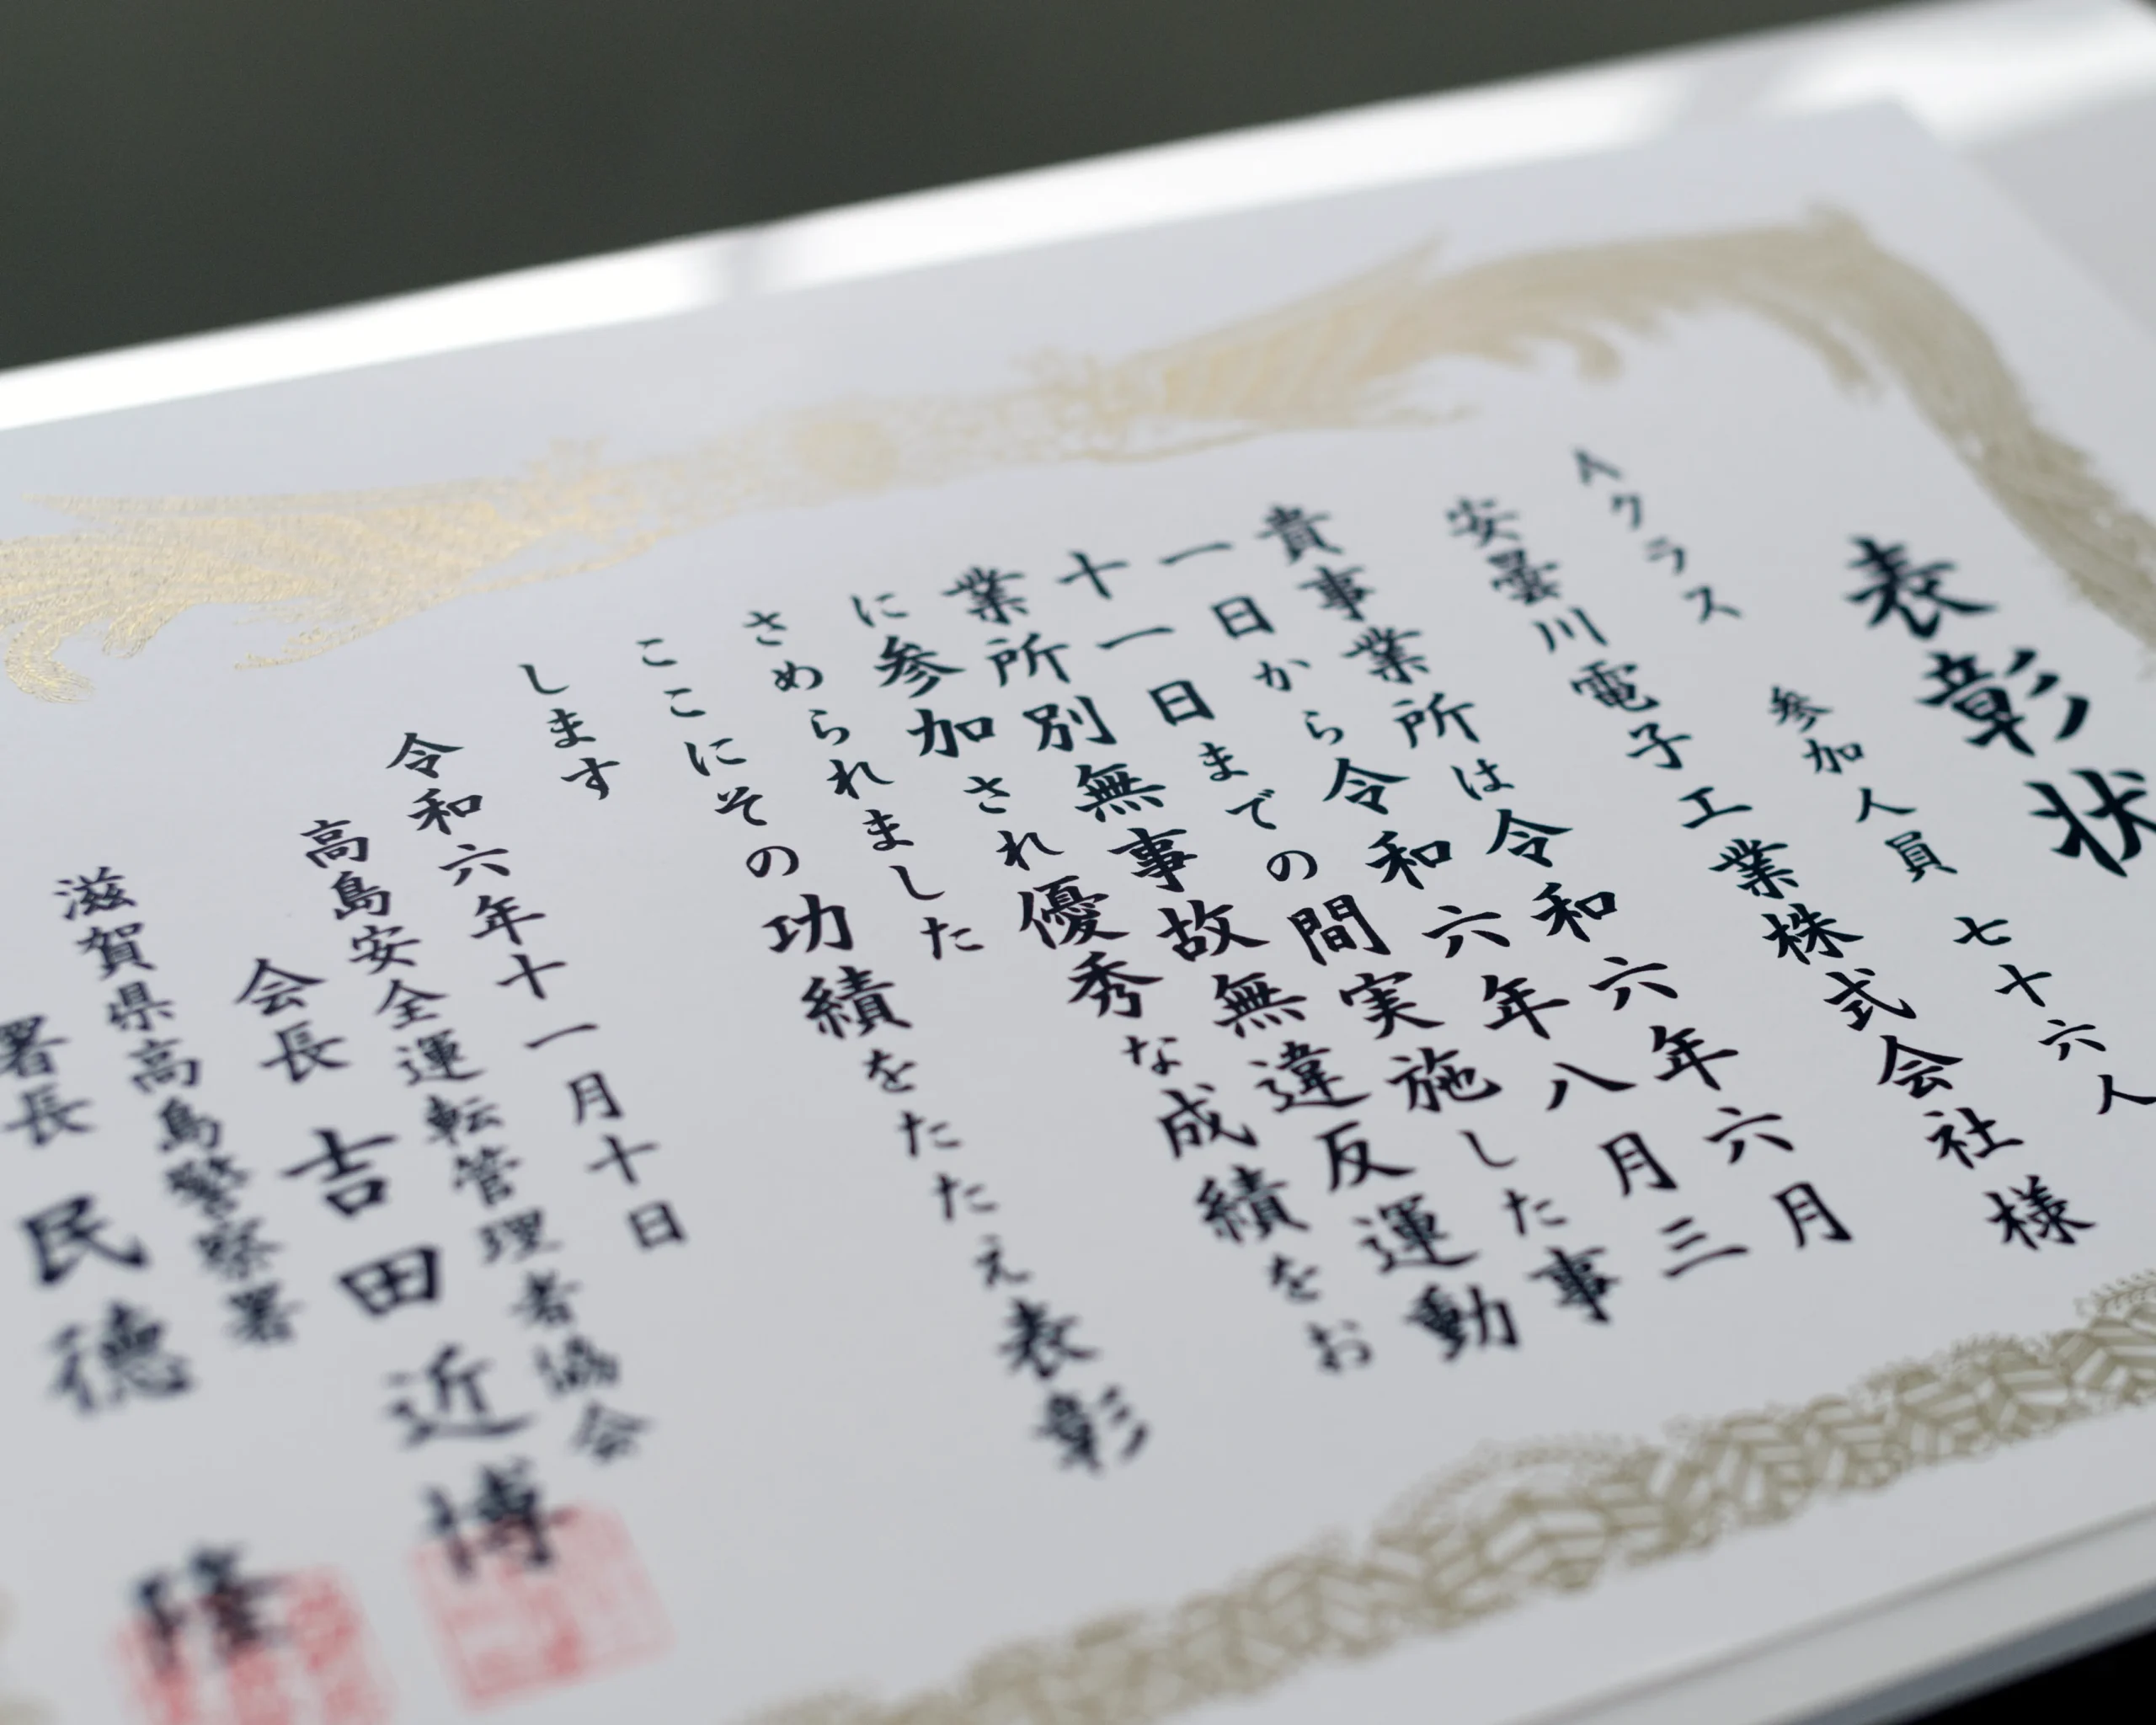 表彰状
Aクラス 参加人員 七十六人
安曇川電子工業株式会社様
貴事業所は令和六年六月
一日から令和六年八月三
十一日までの間実施した事
業所別無事故無違反運動
に参加され優秀な成績をお
さめられました
ここにその功績をたたえ表彰
します
令和六年十一月十日
高島安全運転管理者協会
会長 吉田近博
滋賀県高島警察署
署長 民德 隆